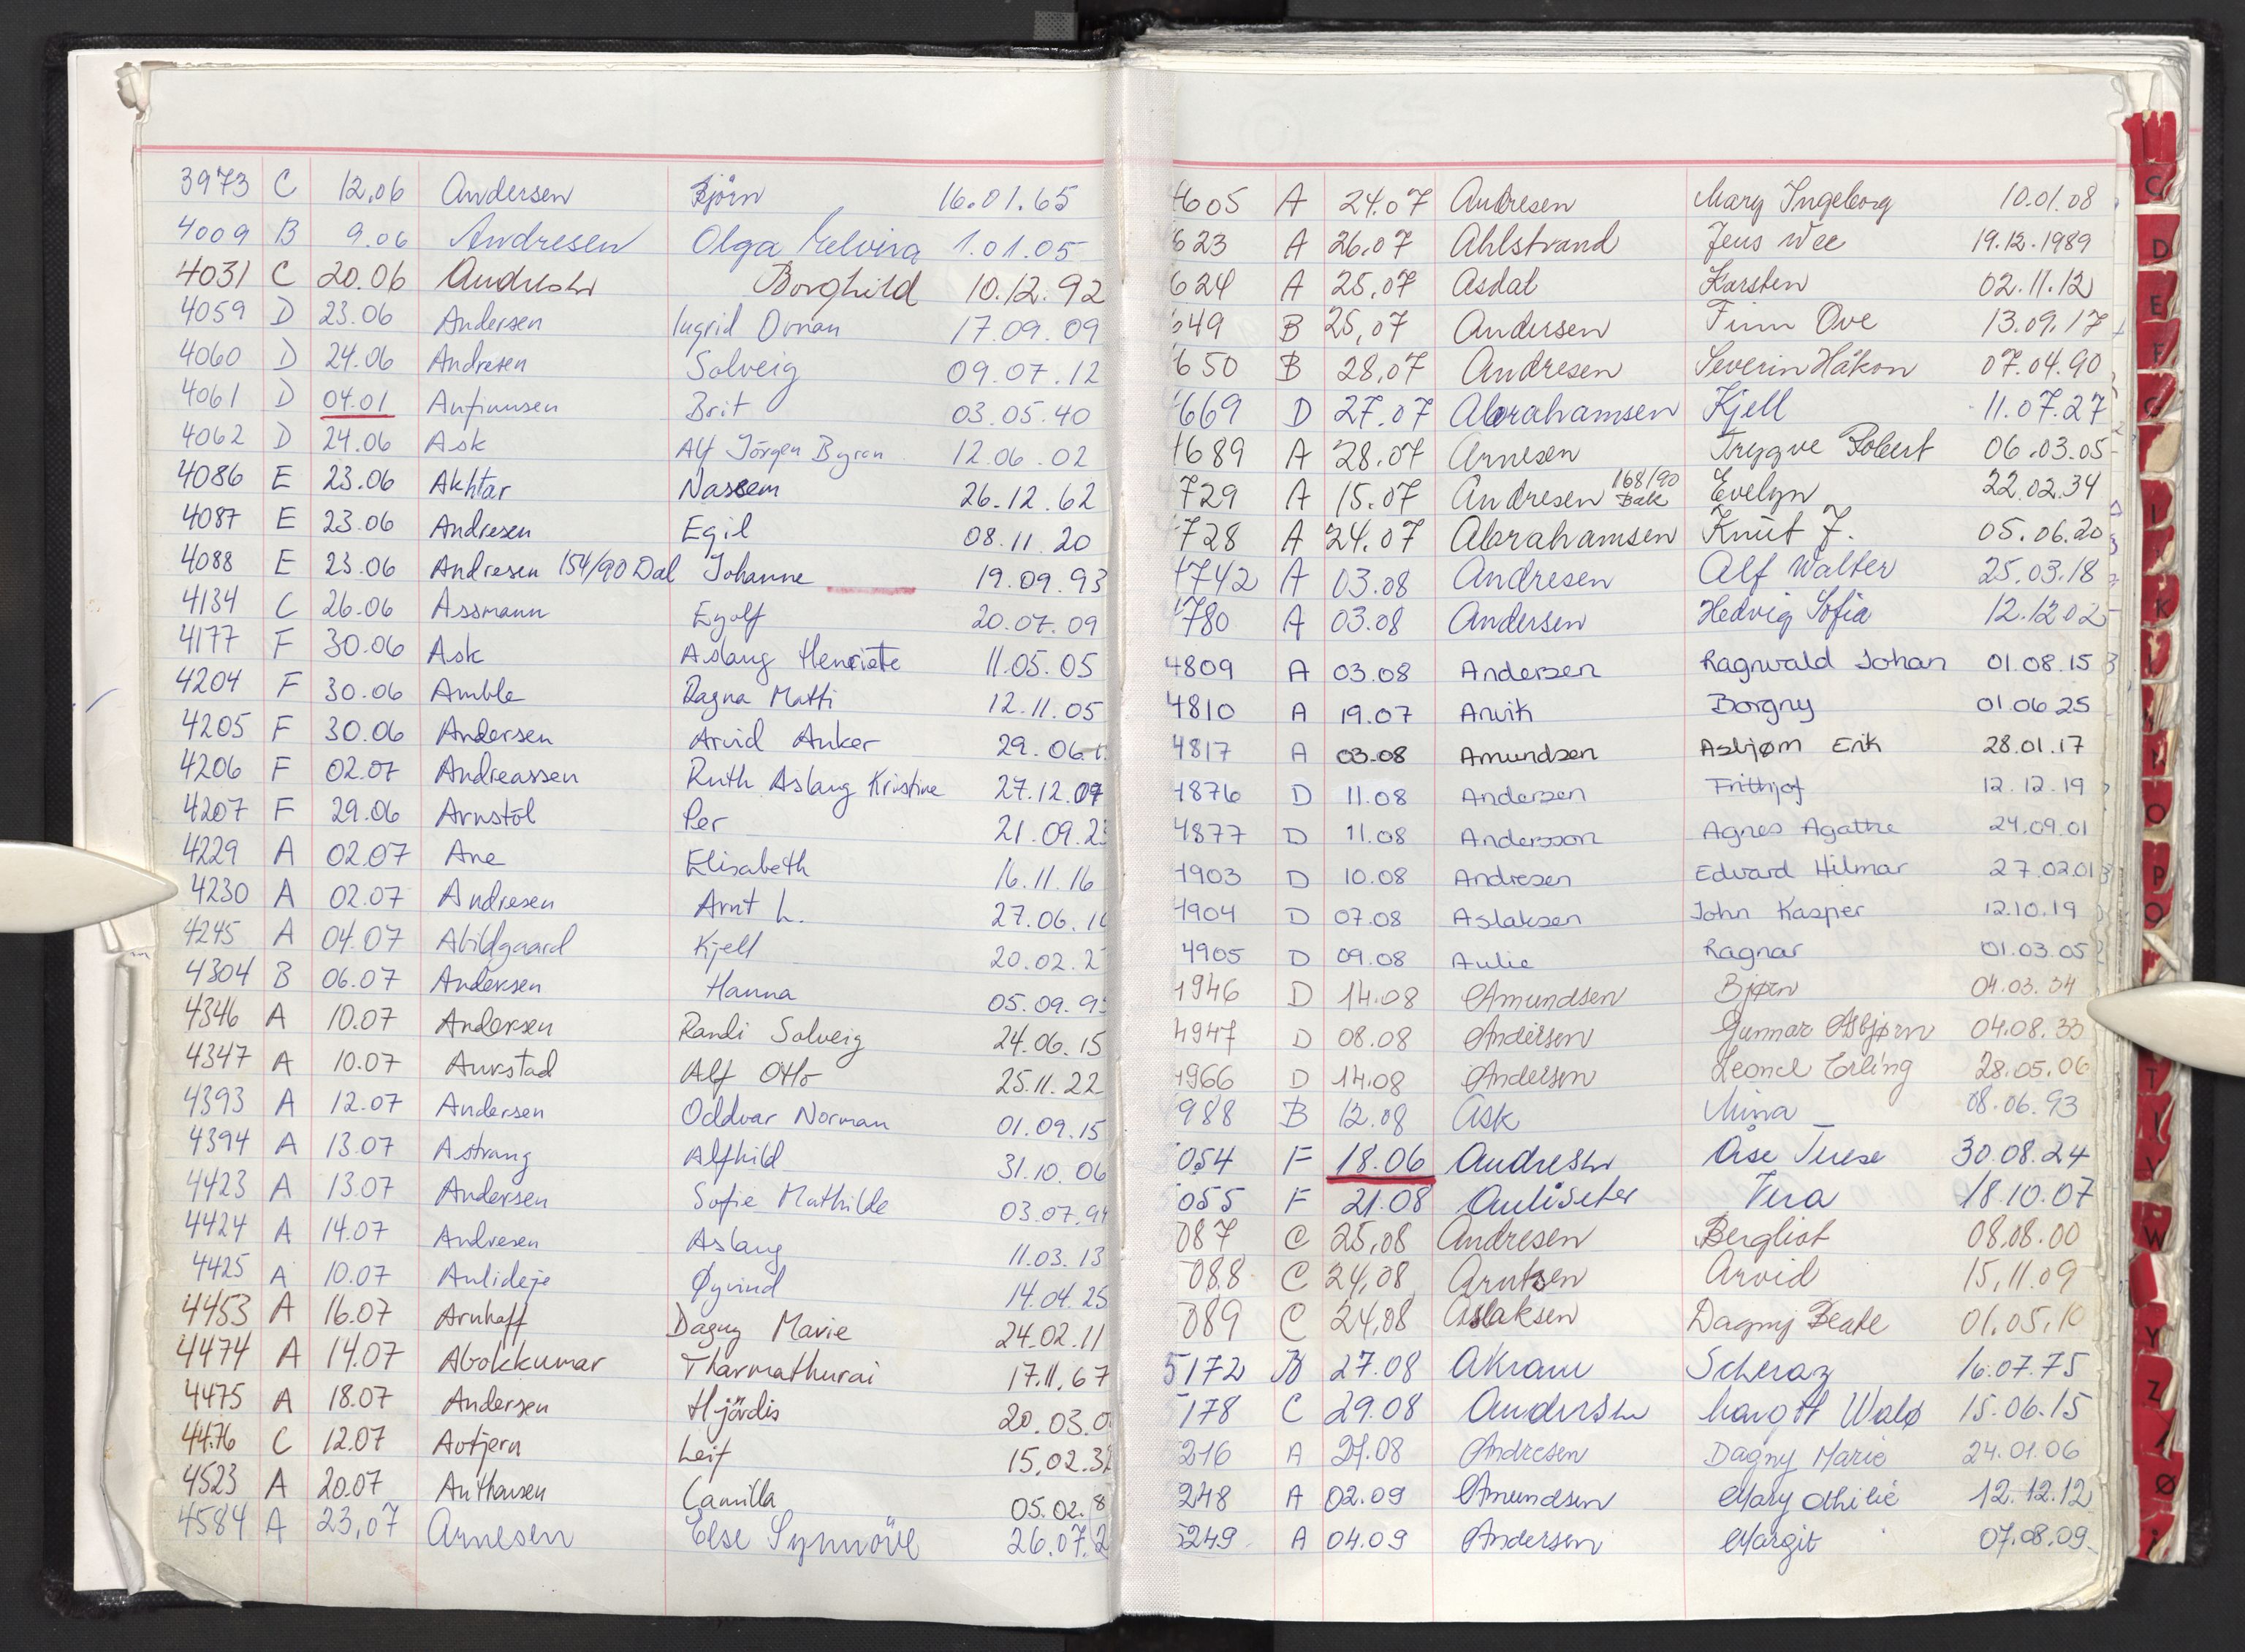 3973 C 12.06 Andersen Bjørn 16.01.65
4009 B 9.06 Andresen Olga Helvina 1.01.05
4031 C 20.06 Andresen Borghild 10.12.92
4059 D 23.06 Andersen Ingrid Ornan 17.09.09
4060 D 24.06 Andresen Solveig 09.07.12
4061 D 04.01 Anfinnsen Brit 03.05.40
4062 D 24.06 Ask Alf Jörgen Byron 12.06.02
4086 E 23.06 Akhtar Nassem 26.12.62
4087 E 23.06 Andresen Egil 08.11.20
4088 E 23.06 Andresen 154/90 Dal Johanne 19.09.93
4134 C 26.06 Assmann Eyolf 20.07.09
4177 F 30.06 Ask Aslaug Henriette 11.05.05
4204 F 30.06 Amble Ragna Matti 12.11.05
4205 F 30.06 Andersen Arvid Anker 29.06.
4206 F 02.07 Andreassen Ruth Aslaug Kristine 27.12.07
4207 F 29.06 Arnstöl Per 21.09.2
4229 A 02.07 Ane Elisabeth 16.11.16
4230 A 02.07 Andresen Arnt L. 27.06.1
4245 A 04.07 Abildgaard Kjell 20.02.2
4304 B 06.07 Andersen Hanna 05.09.9
4346 A 10.07 Andersen Randi Solveig 24.06.15
4347 A 10.07 Aurstad Alf Otto 25.11.22
4393 A 12.07 Andersen Oddvar Norman 01.09.15
4394 A 13.07 Astrang Alfhild 31.10.06
4423 A 13.07 Andersen Sofie Mathilde 03.07.94
4424 A 14.07 Andresen Aslaug 11.03.13
4425 A 10.07 Aulideje Øyvind 14.04.25
4453 A 16.07 Arnhoff Dagny Marie 24.02.11
4474 A 14.07 Abokkumar Tharmathurai 17.11.67
4475 A 18.07 Andersen Hjördis 20.03.0
4476 C 12.07 Avtjern Leif 15.02.3
4523 A 20.07 Anthonsen Camilla 05.02.8
4584 A 23,07 Arnesen Else Synnöve 26.07.2
4605 A 24.07 Andresen Mary Ingeborg 10.01.08
623 A 26.07 Ahlstrand Jens Wee 19.12.1989
624 A 25,07 Asdal Karsten 02.11.12
649 B 25,07 Andersen Finn Ove 13.09.17
650 B 28,07 Andresen Severin Håkon 07.04.90
669 D 27.07 Abrahamsen Kjell 11.07.27
4689 A 28.07 Arnesen Tryggve Robert 06.03.05
729 A 15.07 Andresen 168/90 Bak Evelyn 22.02.34
728 A 24.07 Abrahamsen Knut J. 05.06.20
4742 A 03.08 Andresen Alf Walter 25.03.18
780 A 03.08 Andersen Hedvig Sofia 12.12 02
4809 A 03.08 Andersen Ragnvald Johan 01.08.15
4810 A 19.07 Arvik Borgny 01.06 25
4817 A 03.08 Amundsen Asbjørn Erik 28.01.17
4876 D 11.08 Andersen Frithjof 12.12.19
4877 D 11.08 Andersson Agnes Agathe 24.09.01
4903 D 10.08 Andresen Edvard Hilmar 27.02.01
4904 D 07.08 Aslaksen John Kasper 12.10.19
4905 D 09.08 Aulie Ragnar 01.03.05
4946 D 14.08 Amundsen Bjørn 04.03.34
4947 D 08.08 Andersen Gunnar Asbjørn 04.08.33
4966 D 14.08 Andersen Leonel Erling 28.05.06
988 B 12.08 Ask Mina 08.06.93
054 F 18.06 Andresen Åse Terese 30.08.24
055 F 21.08 Auliseter Vera 18.10.07
087 C 25,08 Andresen Bergliot 08.08.00
088 C 24,08 Arntsen Arvid 15,11.09
089 C 24,08 Aslaksen Dagny Beate 01.05,10
5172 B 27.08 Akram Scheraz 16.07.75
178 C 29.08 Andersen Margit Walø 15.06.15
216 A 27.08 Andresen Dagny Marie 24.01.06
248 A 02.09 Amundsen Mary Othilie 12.12.12
5249 A 04.09 Andersen Margit 07.08.09
C
D
E
F
G
I
K
L
N
O
P
Q
T
V
W
Y
Z
Ø